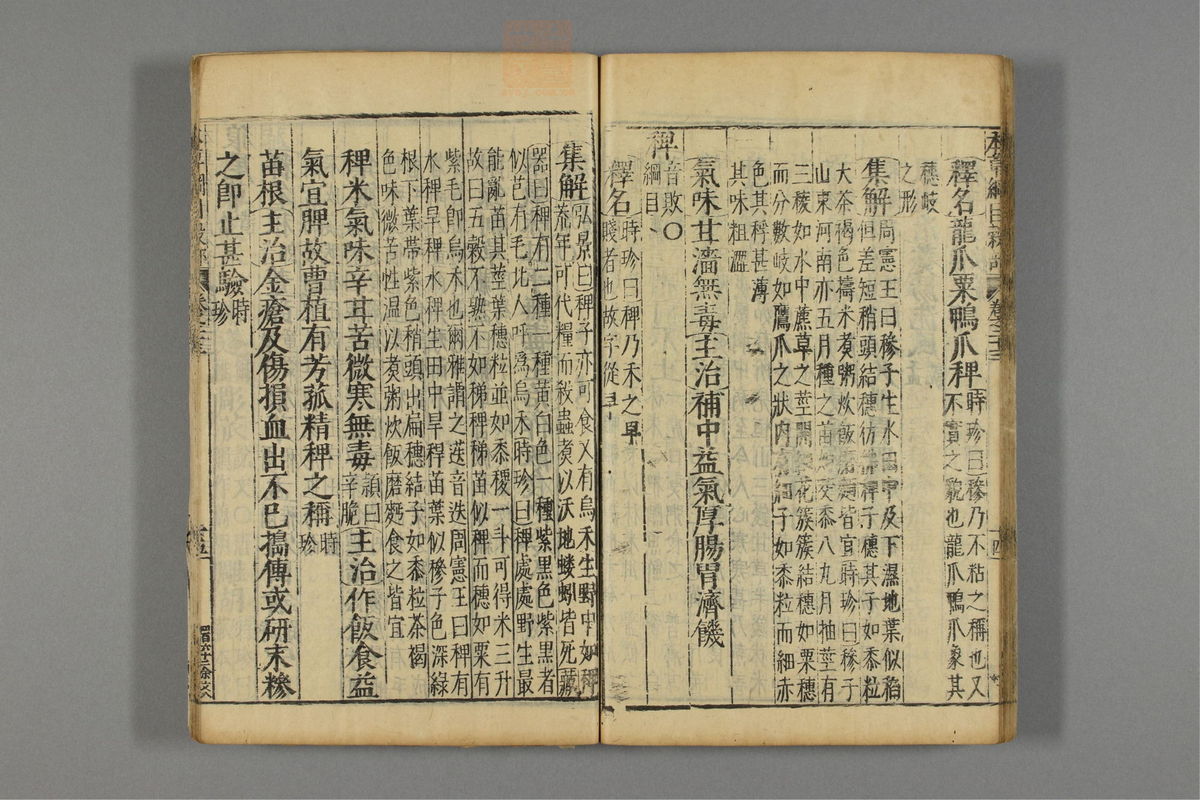 釋名龍爪粟鴨爪稗時珍曰穇乃不粘之稱也又
不實之貌也龍爪鴨爪象其
穗岐
之形
集解周憲王曰穇子生水田中及下濕地葉似稻
但差短稍頭結穗彷彿稗子穗其子如黍粒
大茶褐色擣米煮粥炊飯磨麪皆宜時珍曰穇子
山東河南亦五月種之苗如茭黍八九月抽莖有
三稜如水中藨草之莖開細花簇簇結穗如粟穗
而分數岐如鷹爪之狀内有細子如黍粒而細赤
色其稃甚薄
其味粗澀
氣味甘濇無毒主治補中益氣厚腸胃濟饑
稗
音敗〇
綱目
釋名時珍曰稗乃禾之卑
賤者也故字從卑
集解弘景曰稗子亦可食又有烏禾生野中如稗
荒年可代糧而殺蟲煮以沃地螻蚓皆死藏
器曰稗有二種一種黄白色一種紫黑色紫黑者
似芑有毛北人呼爲烏禾時珍曰稗處處野生最
能亂苗其莖葉穗粒並如黍稷一斗可得米三升
故曰五穀不熟不如稊稗稊苗似稗而穗如粟有
紫毛即烏禾也爾雅謂之蓧音迭周憲王曰稗有
水稗旱稗水稗生田中旱稗苗葉似穇子色深綠
根下葉帶紫色稍頭出扁穗結子如黍粒茶褐
色味微苦性温以煮粥炊飯磨麪食之皆宜
稗米氣味辛甘苦微寒無毒頴曰
辛脆主治作飯食益
氣宜脾故曹植有芳菰精稗之稱時
珍
苗根主治金瘡及傷損血出不已搗傅或研末糝
之即止甚驗時
珍